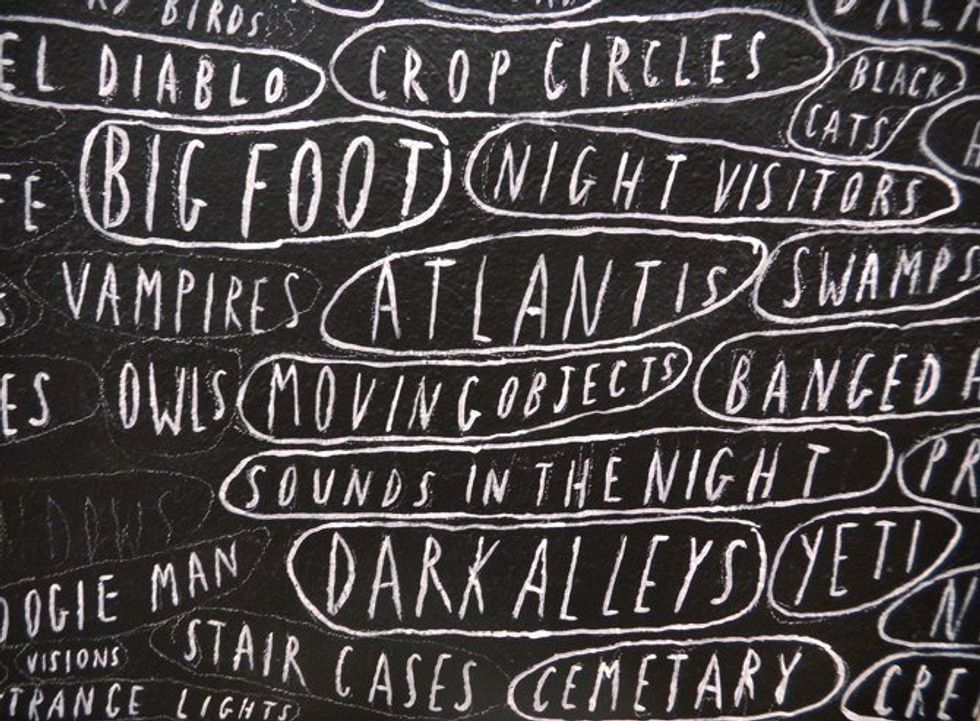 BIRDS
EL DIABLO
CROP CIRCLES
BLACK
CATS
BIG FOOT
NIGHT VISITORS
VAMPIRES
ATLANTIS
SWAMPS
OWLS
MOVING OBJECTS
BANGED
SOUNDS IN THE NIGHT
OOGIE MAN
DARK ALLEYS
YETI
VISIONS
STAIR CASES
CEMETARY
CRE
TRANGE LIGHTS